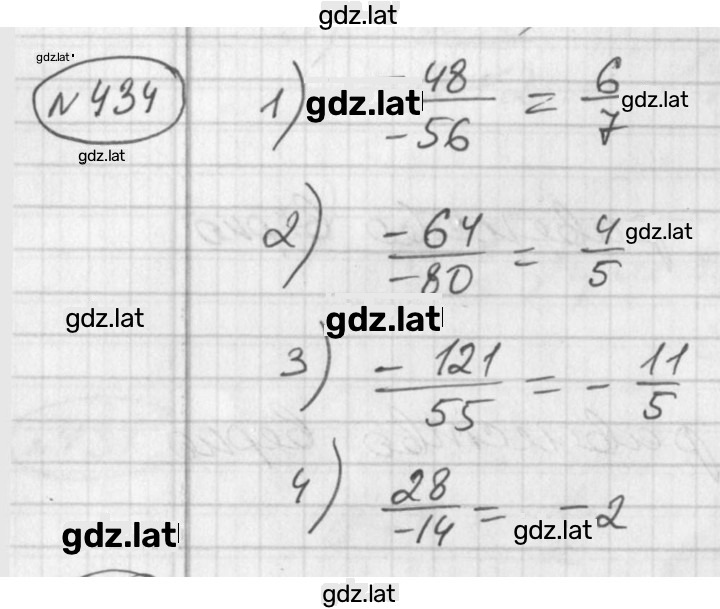 gdz.lat
gdz.lat
№ 434
gdz.lat
1) -48/-56 = 6/7
gdz.lat
gdz.lat
2) -64/-80 = 4/5
gdz.lat
gdz.lat
gdz.lat
3) -121/55 = -11/5
4) 28/-14 = -2
gdz.lat
gdz.lat
gdz.lat